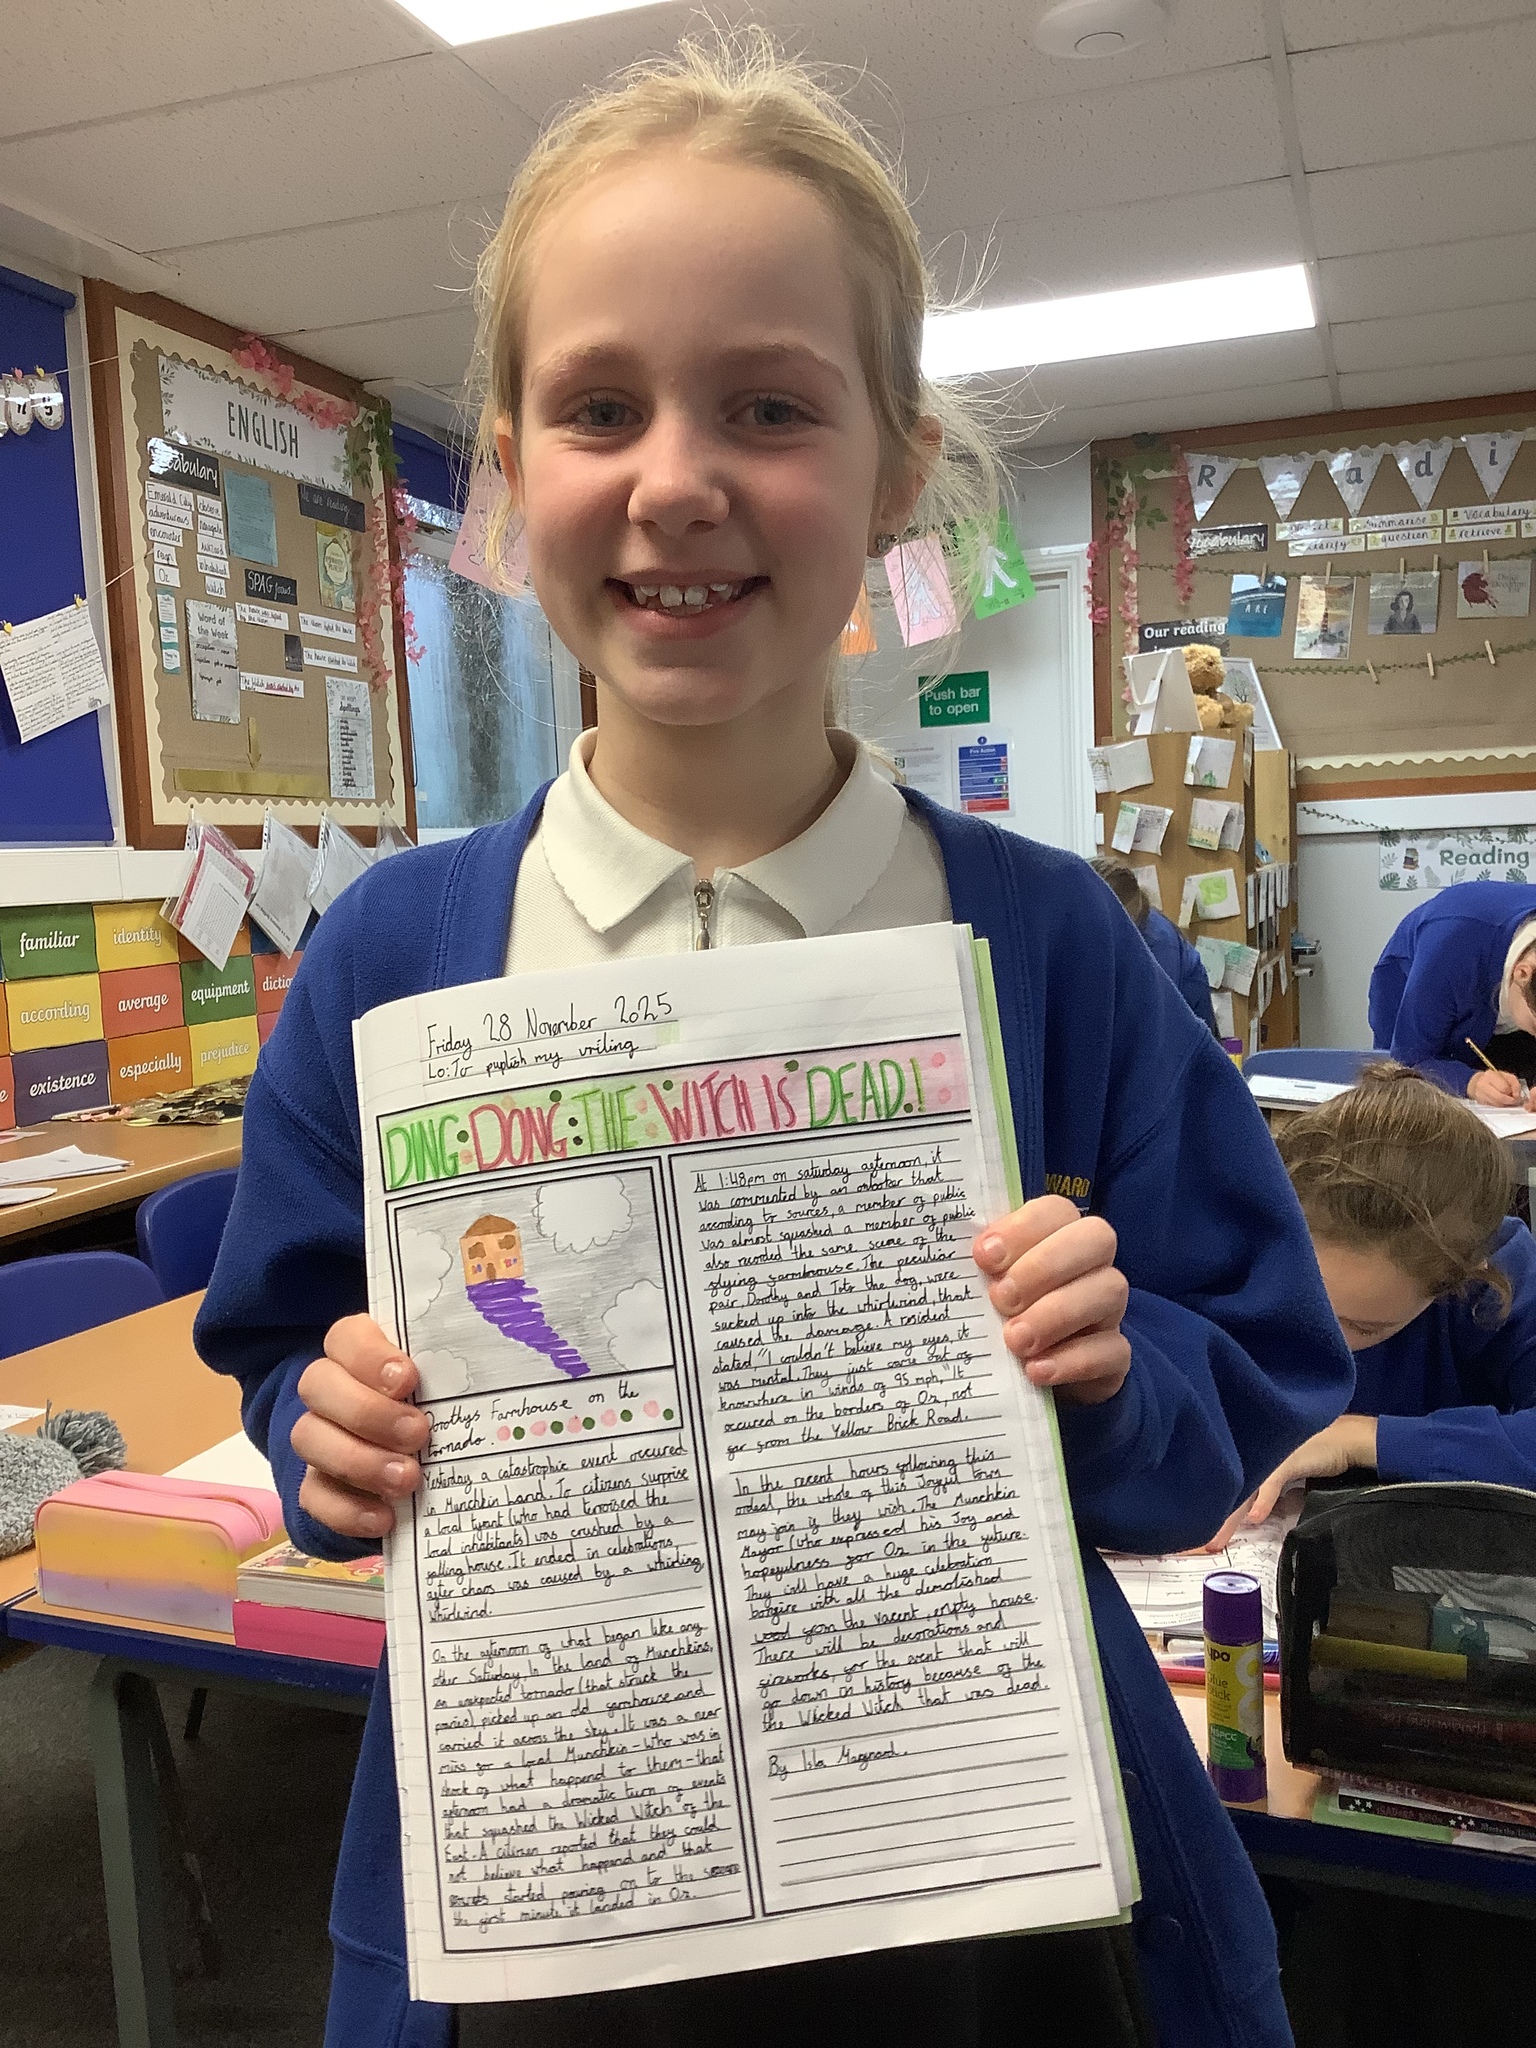 Friday 28 November 2025
Lo: To puplish my writing
DING DONG THE WITCH IS DEAD!
Dorothys Farmhouse on the
tornado.
Yesterday a catastrophic event occured
in Munchkin Land. To citizens surprise
a local tyrant (who had terroised the
local inhabitants) was crushed by a
falling house. It ended in celebrations,
after chaos was caused by a whirling
whirlwind.
On the afternoon of what began like any
other Saturday, In the land of Munchkins,
an unexpected tornado (that struck the
praries), picked up an old farmhouse and
carried it across the sky. It was a near
miss for a local Munchkin - who was in
shock of what happend to them - that
afternoon had a dramatic turn of events
that squashed the Wicked Witch of the
East. A citizen reported that they could
not believe what happend and that
started pouring on to the
the first minute it landed in Oz.
At 1:48pm on saturday afternoon, it
was commented by an onlooker that
according to sources, a member of public
was almost squashed a member of public
also recorded the same scene of the
flying farmhouse. The peculiar
pair, Dorothy and Toto the dog, were
sucked up into the whirlwind, that
caused the damage. A resident
stated, "I couldn't believe my eyes, it
was mental. They just came out of
knowhere in winds of 95 mph," It
occured on the borders of Oz, not
far from the Yellow Brick Road.
In the recent hours following this
ordeal, the whole of this Joyful town
may join if they wish. The Munchkin
Mayor (who expressed his Joy and
hopefulness for Oz in the future.
They will have a huge celebration
bonfire with all the demolished
wood from the vacent, empty house.
There will be decorations and
fireworks, for the event that will
go down in history because of the
the Wicked Witch that was dead.
By Isla Maynard.
ENGLISH
Vocabulary
Emerald City
adventurous
encounter
Oz
observe
navigate
witch
We are reading
SPAG focus...
Word of
the Week
familiar
identity
according
average
equipment
existence
especially
prejudice
Push bar
to open
Fire Action
R a d i
Vocabulary
summarise
Vocabulary
clarify
question?
retrieve
ARE
Our reading
Reading
WARD
Glue
Stick
NSPCC